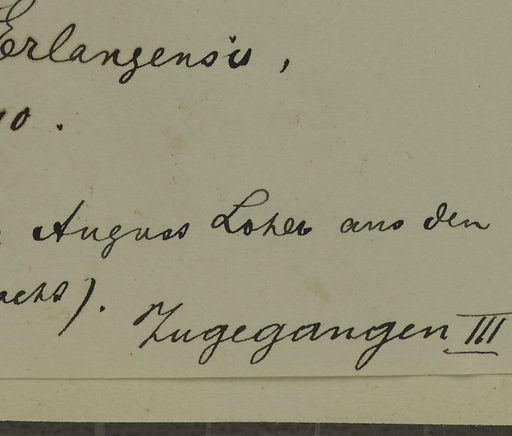 Erlangensis,
10.
August Loher aus den
achs).
Zugegangen III